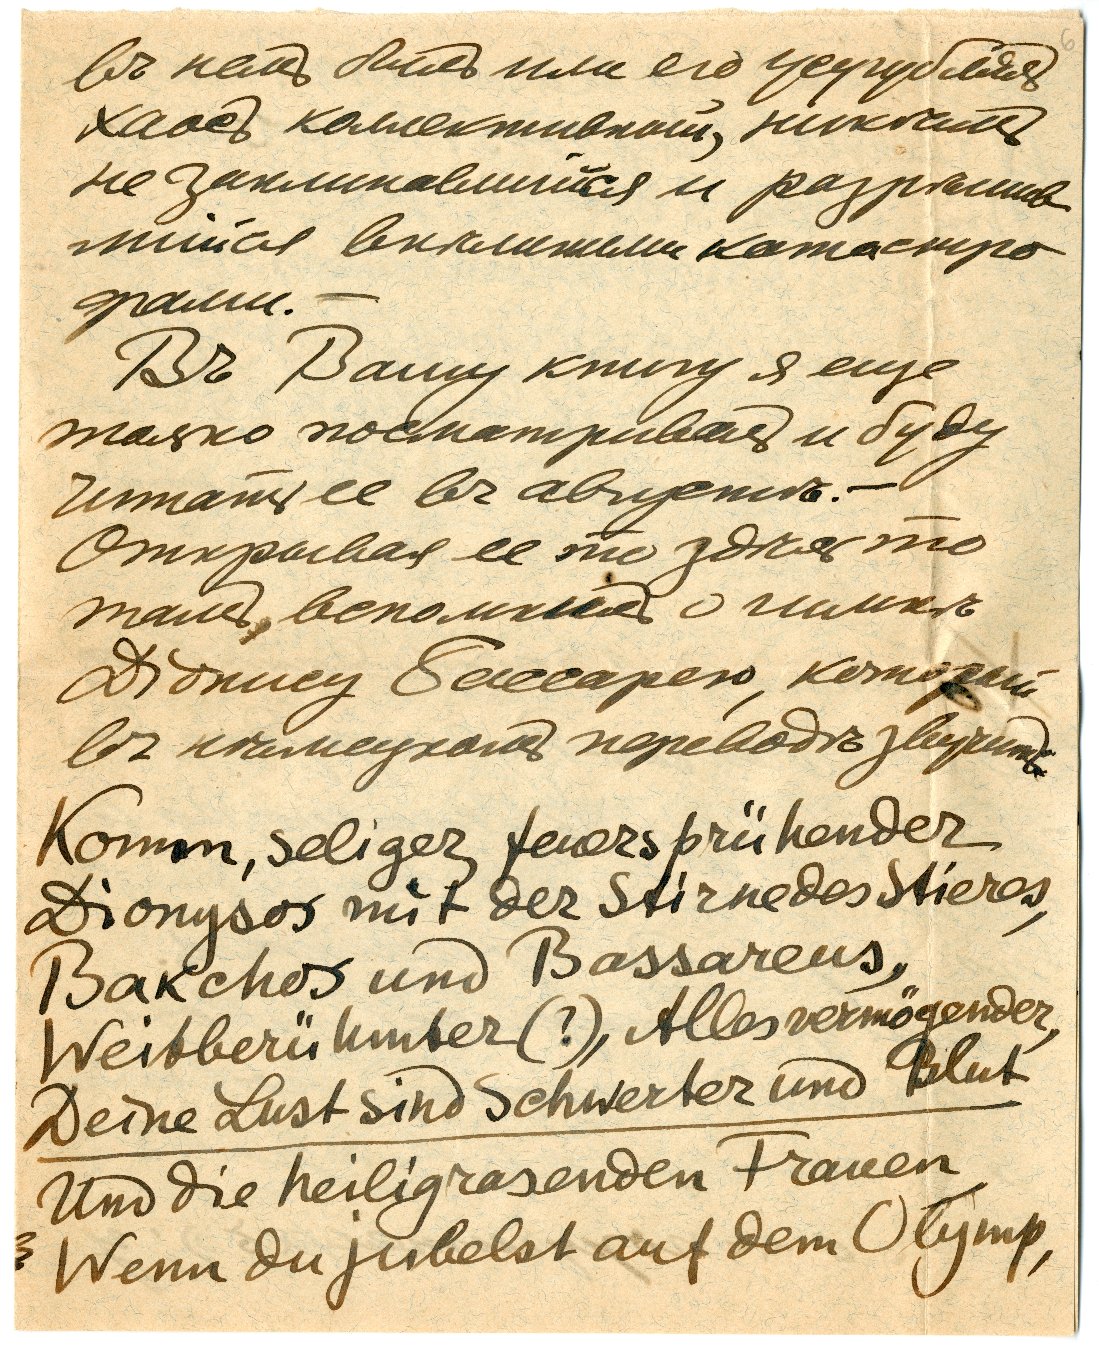 въ немъ былъ или его усугублялъ
хаосъ коллективный, никѣмъ
не заклинавшійся и разрѣшив
шійся внѣшними катастро
фами. —
Въ Вашу книгу я еще
только посматривалъ и буду
читать ее въ августѣ. —
Открывая ее то здѣсь то
тамъ, вспомнилъ о гимнѣ
Діонису Бассарею, который
въ нѣмецкомъ переводѣ звучитъ:
Komm, seliger, feuersprühender
Dionysos mit der Stirne des Stieres,
Bakchos und Bassareus,
Weitberühmter (?), Allesvermögender,
Deine Lust sind Schwerter und Blut
Und die heiligrasenden Frauen
Wenn du jubelst auf dem Olymp,